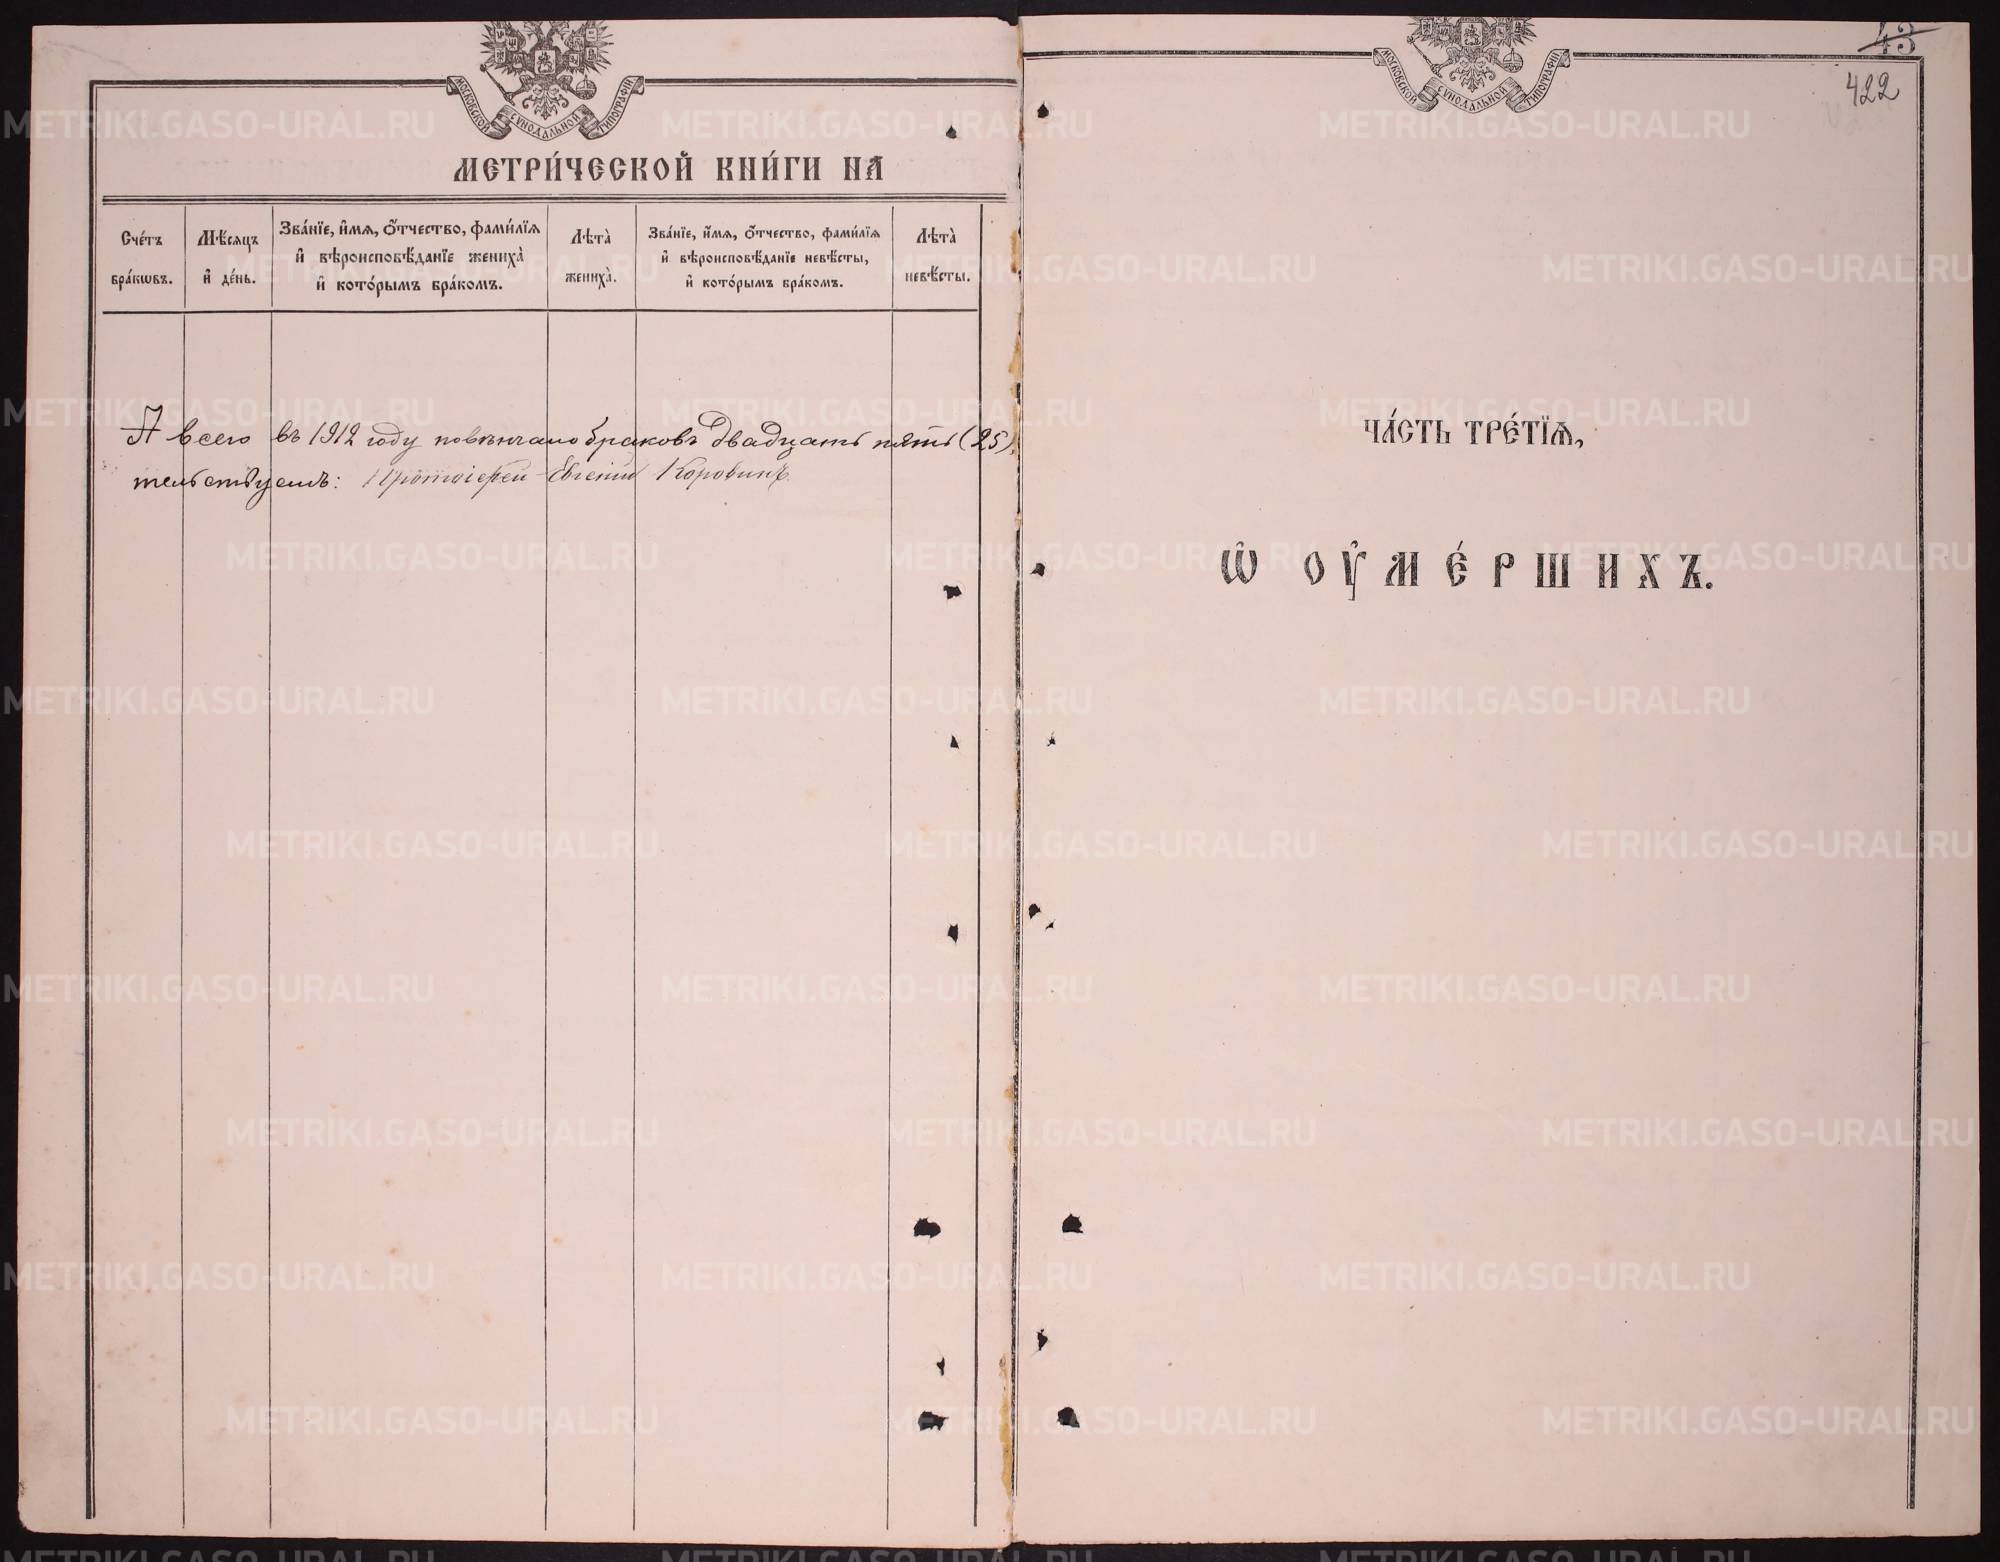 МОСКОВСКОЙ СѴНОДАЛЬНОЙ ТИПОГРАФІИ
МЕТРИ́ЧЕСКОЙ КНИ́ГИ НА
Сче́тъ бра́кѡвъ.
Мѣ́сяцъ и҆ де́нь.
Зва́нїе, и҆́мѧ, ѻ҆́тчество, фами́лїѧ и҆ вѣроисповѣ́данїе жениха̀ и҆ кото́рымъ бра́комъ.
Лѣта̀ жениха̀.
Зва́нїе, и҆́мѧ, ѻ҆́тчество, фами́лїѧ и҆ вѣроисповѣ́данїе невѣ́сты, и҆ кото́рымъ бра́комъ.
Лѣта̀ невѣ́сты.
А всего въ 1912 году повѣнчано браковъ двадцать пять (25)
тельствуемъ: Протоіерей Евгеній Коровинъ
МОСКОВСКОЙ СѴНОДАЛЬНОЙ ТИПОГРАФІИ
43
422
ЧА́СТЬ ТРЕ́ТЇѦ,
Ѡ҆ ОУ҆МЕ́РШИХЪ.
METRIKI.GASO-URAL.RU